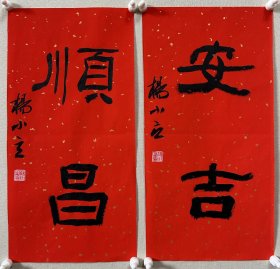 安吉
楊小立
順昌
楊小立